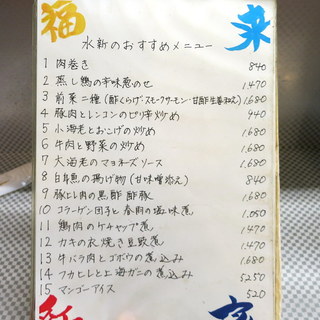 福 来
水新のおすすめメニュー
1 肉巻き 840
2 蒸し鶏の辛味葱のせ 1.470
3 前菜二種(酢くらげ・スモークサーモン・甘酢生姜和え) 1.680
4 豚肉とレンコンのピリ辛炒め 940
5 小海老とおこげの炒め 1.680
6 牛肉と野菜の炒め 1.680
7 大海老のマヨネーズソース 1.680
8 白身魚の揚げ物(甘味噌添え) 840
9 豚ヒレ肉の黒酢酢豚 1.680
10 コラーゲン団子と春雨の塩味煮 1.050
11 鶏肉のケチャップ煮 1.470
12 カキの衣焼き豆豉煮 1.470
13 牛バラ肉とゴボウの煮込み 1.680
14 フカヒレと上海ガニの煮込み 5250
15 マンゴーアイス 520